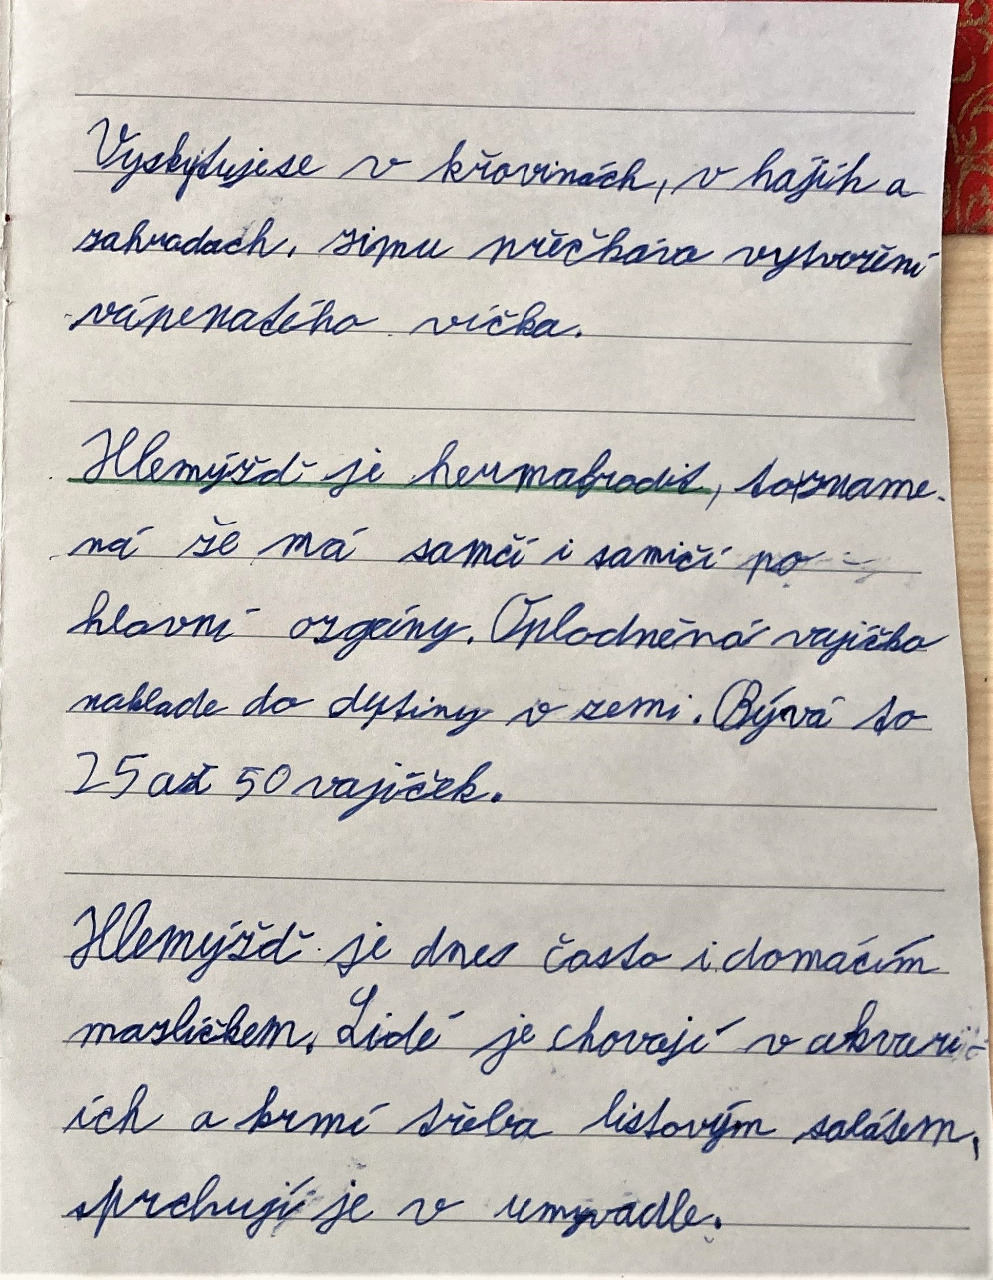 Vyskytujese v křovinách, v hájíh a
zahradach. zimu přěčkáva vytvořění
vápenatého víčka.
Hlemýžď je hermafrodit, tozname-
ná že má samčí i samičí po-
hlavní orgány. Oplodněná vajíčka
naklade do dutiny v zemi. Bývá to
25 až 50 vajíček.
Hlemýžď je dnes často i domácím
mazlíčkem. Lidé je chovají v akvari-
ích a krmí třeba listovým salátem,
sprchují je v umyvadle.